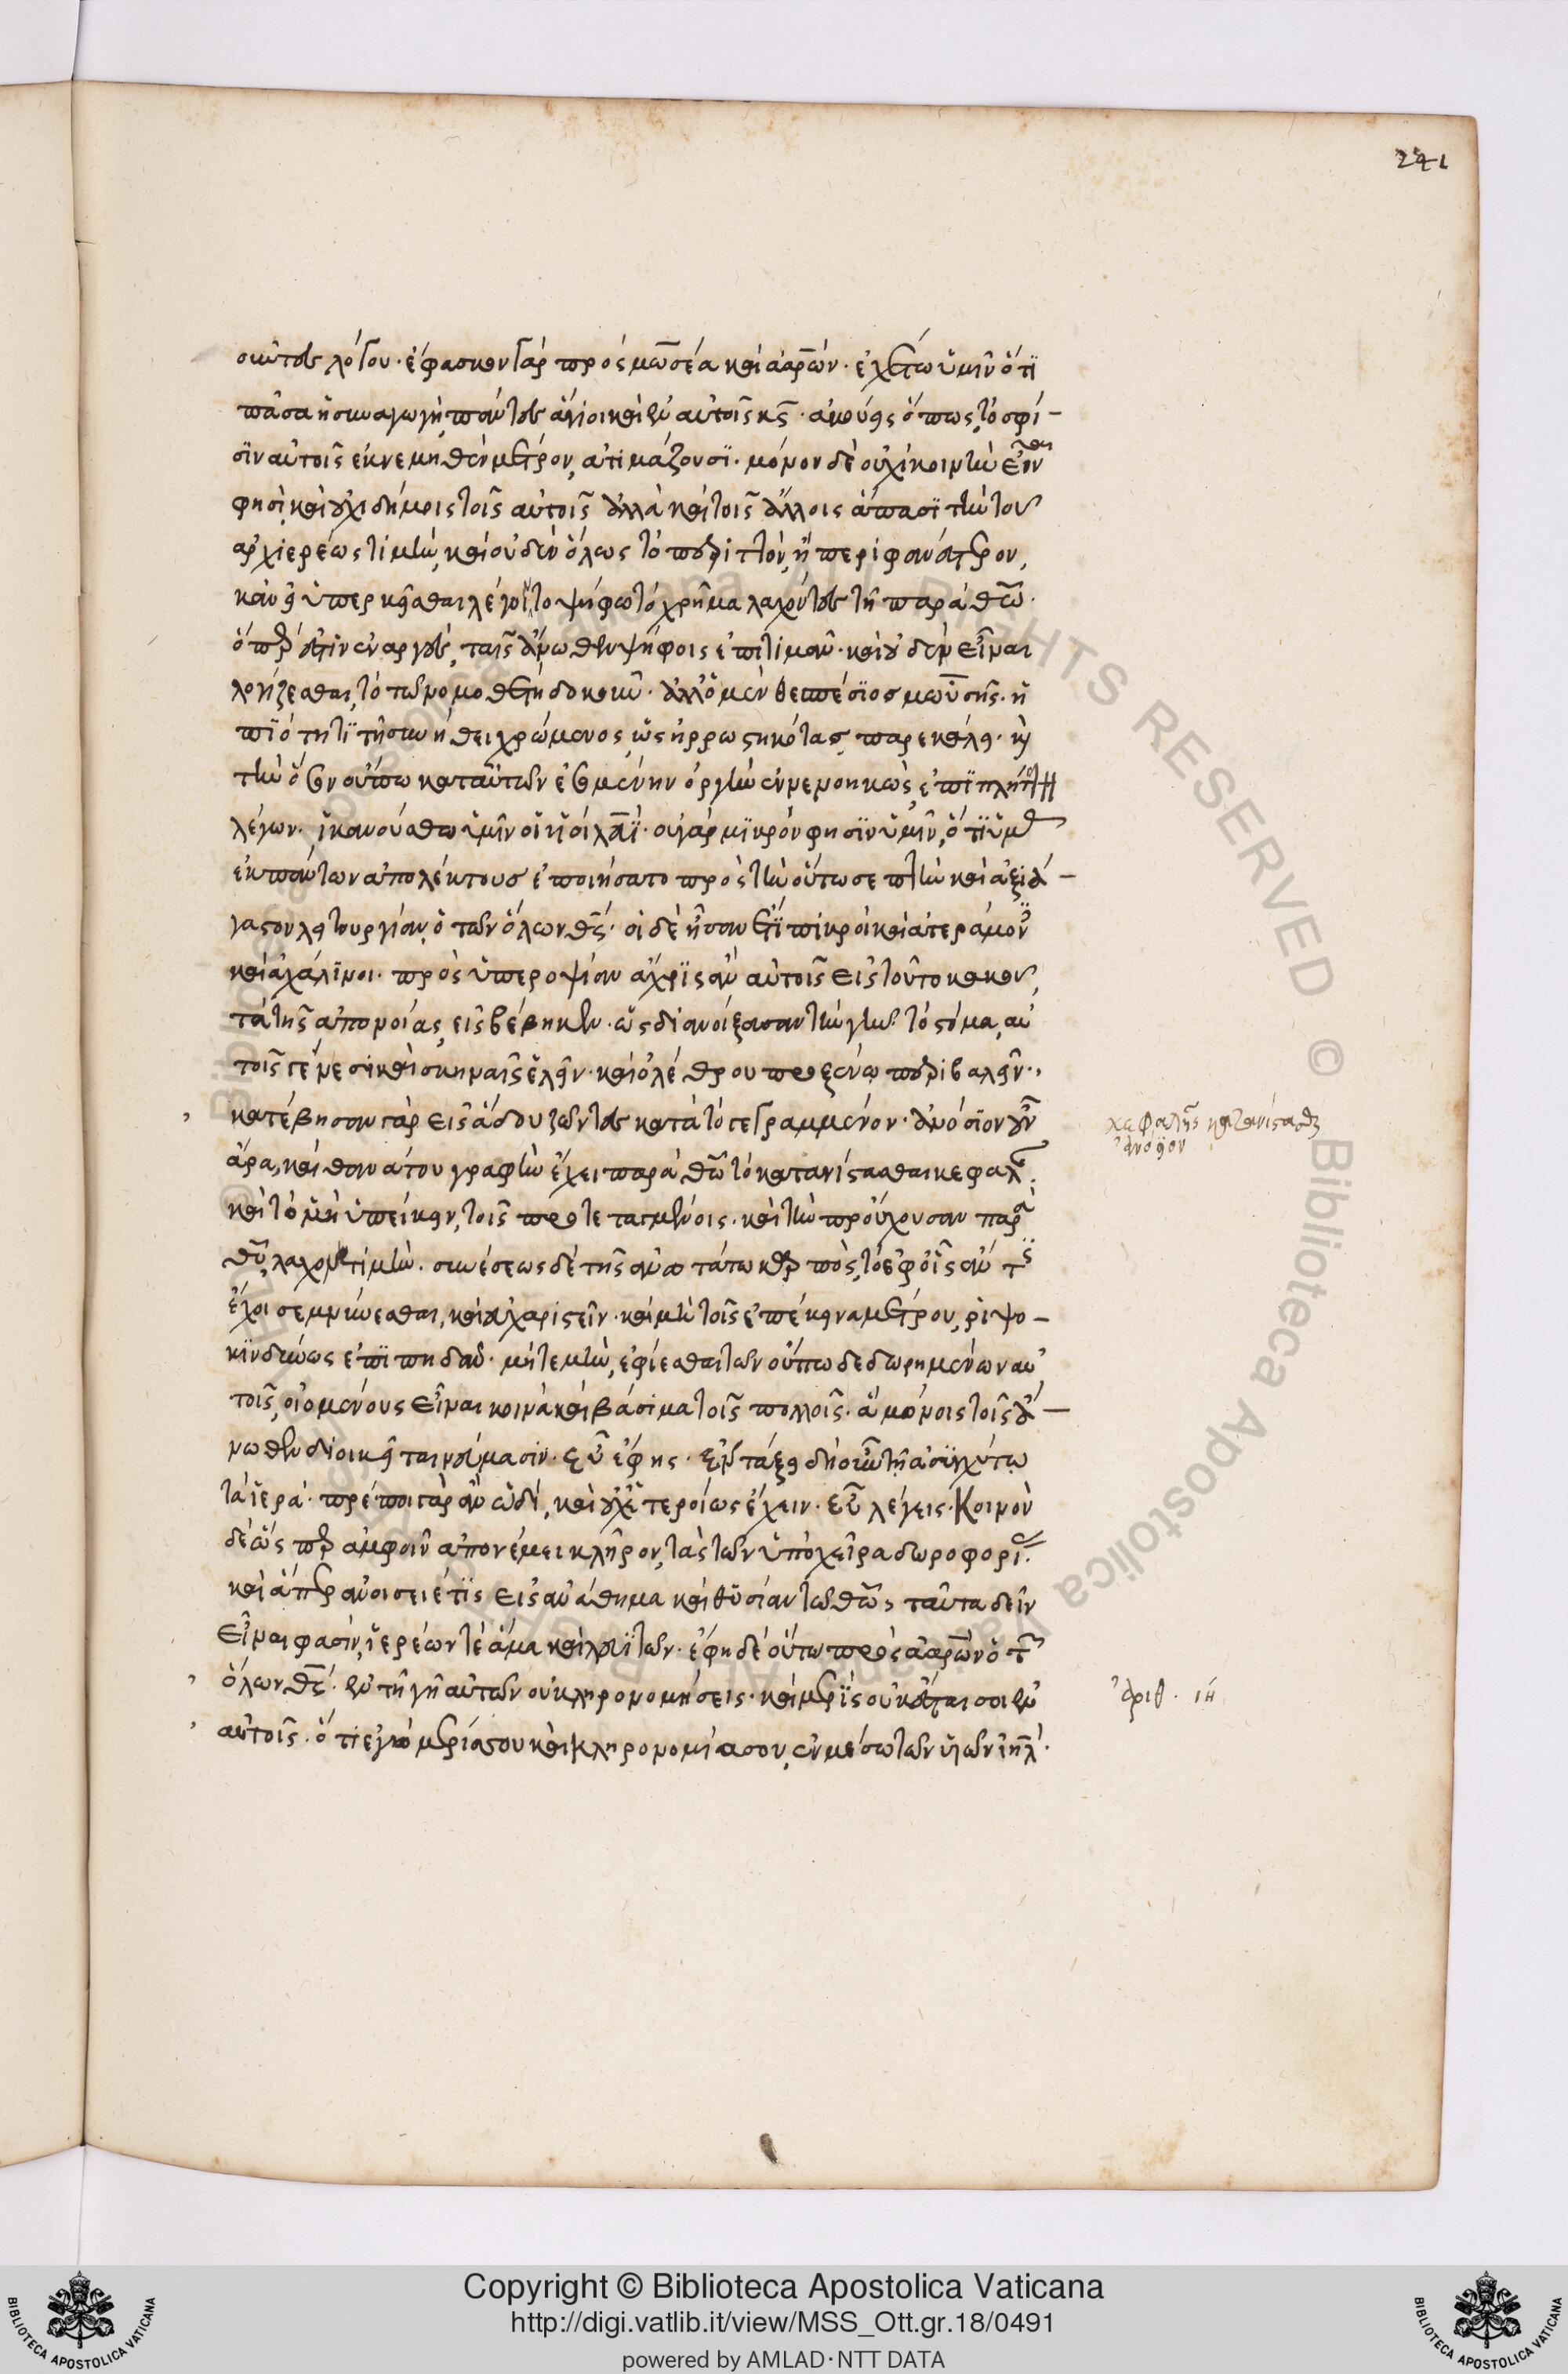 241
σιῶντος λόγου· ἔφασκον γὰρ πρὸς μωσέα καὶ ἀαρών· ἐχέτω ὑμῖν ὅτι
πᾶσα ἡ συναγωγὴ, πάντες ἅγιοι καὶ ἐν αὐτοῖς κς· ἀκούεις ὅπως, τὸ σφί-
σιν αὐτοῖς ἐκνεμηθὲν μέτρον, ἀτιμάζουσι· μόνον δὲ οὐχὶ κοινὴν εἶναι
φησὶ, καὶ οὐχὶ δὴ μόνοις τοῖς αὐτοῖς ἀλλὰ καὶ τοῖς ἄλλοις ἅπασι τὴν τοῦ
ἀρχιερέως τιμὴν, καὶ οὐδὲν ὅλως τὸ περιττὸν, ἢ περιφανέστερον,
κἂν εἰ ὑπερκεῖσθαι λέγοι το ψήφω τὸ χρῆμα λαχόντος τῇ παρὰ θεῶ·
ὅπερ ἐστὶν ἐναργῶς, ταῖς ἄνωθεν ψήφοις ἐπιτιμᾶν· καὶ οὐδὲν εἶναι
λογίζεσθαι, τὸ τῶ νομοθέτη δοκοῦν· ἀλλ' ὁ μὲν θεσπέσιος μωϋσῆς· ἠ
πιότητι τῇ συνήθει χρώμενος, ὡς ἠρρωστηκότας, παρεκάλει· καὶ
τὴν ὅσον οὔπω κατ' αὐτῶν ἐσομένην ὀργὴν ἐννενοηκὼς, ἐπιπλήττει
λέγων· ἱκανούσθω ὑμῖν υἱοὶ λευΐ· οὐ γὰρ μικρόν φησιν ὑμῖν, ὅτι ὑμᾶς
ἐκ πάντων ἀπολέκτους ἐποιήσατο πρὸς τὴν οὕτω σεπτὴν καὶ ἀξιά-
γαστον λειτουργίαν, ὁ τῶν ὅλων θς· οἱ δὲ ἦσαν ἔτι πικροὶ καὶ ἀτεράμονες
καὶ ἀχάλινοι· πρὸς ὑπεροψίαν ἄχρις ἂν αὐτοῖς εἰς τοῦτο κακοῦ,
τὰ τῆς ἀπονοίας, εἰσβέβηκεν· ὡς διανοίξασαν τὴν γῆν τὸ στόμα, αὐ
τοῖς γένεσι καὶ σκηναῖς ἑλεῖν· καὶ ὀλέθρου προξένω περιβαλεῖν·
κατέβησαν γὰρ εἰς ἅδου ζῶντες κατὰ τὸ γεγραμμένον· ἀνόσιον οὖν
ἄρα, καὶ θανάτου γραφὴν ἔχει παρὰ θῶ τὸ κατανίστασθαι κεφαλῆς·
καὶ τὸ μὴ ὑπείκειν, τοῖς προτεταγμένοις· καὶ τὴν προὔχουσαν παρὰ
θῦ, λαχοῦσι τιμὴν· συνέσεως δὲ τῆς ἀνωτάτω καρπὸς, τὸ ἐφ' οἷς ἄν τις
ἔχοι σεμνύνεσθαι, καὶ εὐχαριστεῖν· καὶ μὴ τοῖς ἐπέκεινα μέτρου, ῥιψο-
κινδύνως ἐπιπηδᾶν· μήτε μὴν, ἐφίεσθαι τῶν οὔπω δεδωρημένων αὐ
τοῖς, οἰομένους εἶναι κοινὰ καὶ βάσιμα τοῖς πολλοῖς· ἃ μόνοις τοῖς ἄ-
νωθεν διοικεῖται νεύμασιν· εὖ ἔφης· ἐν τάξει δὴ οὖν τῇ ἀσυγχύτω
τὰ ἱερά· πρέποι γὰρ ἂν ὡδὶ, καὶ οὐχ ἑτεροίως ἔχειν· εὖ λέγεις· Κοινὸν
δὲ ὥσπερ ἀμφοῖν ἀπονέμει κλῆρον, τὰς τῶν ὑπὸ χεῖρα δωροφορίας·
καὶ ἅπερ ἀνοίσειέ τις εἰς ἀνάθημα καὶ θυσίαν τῶ θῶ, ταῦτα δεῖν
εἶναι φασὶν, ἱερέων τὲ ἅμα καὶ λευϊτῶν· ἔφη δὲ οὕτω πρὸς ἀαρὼν ὁ τῶν
ὅλων θς· ἐν τῇ γῇ αὐτῶν οὐ κληρονομήσεις· καὶ μερὶς οὐκ ἔσται σοι ἐν
αὐτοῖς· ὅτι ἐγὼ μερίς σου καὶ κληρονομία σου, ἐν μέσω τῶν υἱῶν ἰηλ·
κεφαλῆς κατανίστασθαι
ἀνόσιον
ἀριθ. ιη
Copyright © Biblioteca Apostolica Vaticana
http://digi.vatlib.it/view/MSS_Ott.gr.18/0491
powered by AMLAD·NTT DATA
BIBLIOTECA APOSTOLICA VATICANA
BIBLIOTECA APOSTOLICA VATICANA